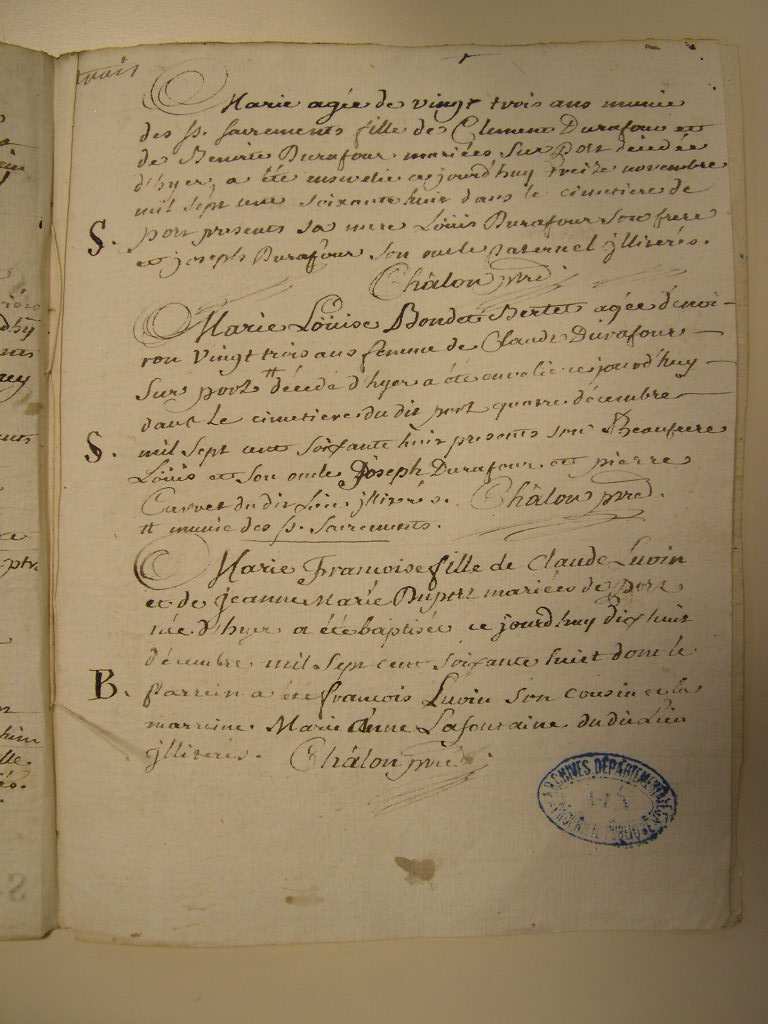 trois
Marie agée de vingt trois ans munie
des ss. sacrements fille de Clement Durafour et
de Benoite Durafour mariées sur port décédée
d'hyer, a été ensevelie ce jourd'huy treize novembre
mil sept cent soixante huit dans le cimetiere de
S. port presents sa mere Löuis Durafour son frere
et joseph Durafour son oncle paternel jlliterés.
Châlon
Marie Löuise Bondet agée d'envi-
ron vingt trois ans femme de Claude Durafour
sur port # décédé d'hyer a été ensevelie ce jourd'huy
dans le cimetiere du dit port quatre décembre
S. mil sept cent soixante huit presents son Beaufrere
Löuis et son oncle Joseph Durafour et pierre
Carret du dit Lieu jlliterés. Châlon
# munie des ss. sacrements.
Marie Françoise fille de Claude Luvin
et de jeanne Marie Duport mariées de port
née d'hyer a été baptisée ce jourd'huy dix huit
décembre mil sept cent soixante huict dont le
B. parrein a été françois Luvin son cousin et la
marreine Marie Anne Lafontaine du dit Lieu
jlliterés. Châlon
ARCHIVES DÉPARTEMENTALES